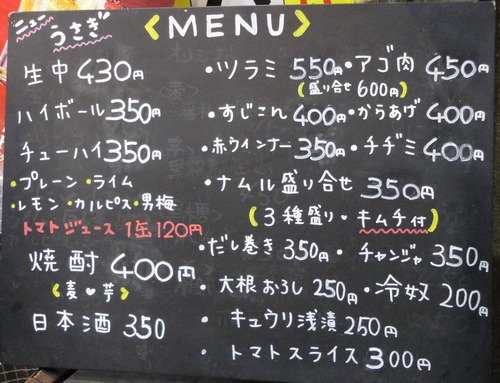 ニューうさぎ
《MENU》
生中 430円
ハイボール 350円
チューハイ 350円
・プレーン・ライム
・レモン・カルピス・男梅
トマトジュース 1缶120円
焼酎 400円
《麦♥芋》
日本酒 350
・ツラミ 550円・アゴ肉 450円
(盛り合せ 600円)
・すじこん 400円・からあげ 400円
・赤ウインナー 350円・チヂミ 400円
・ナムル盛り合せ 350円
(3種盛り・キムチ付)
・だし巻き 350円・チャンジャ 350円
・大根おろし 250円・冷奴 200円
・キュウリ浅漬 250円
・トマトスライス 300円